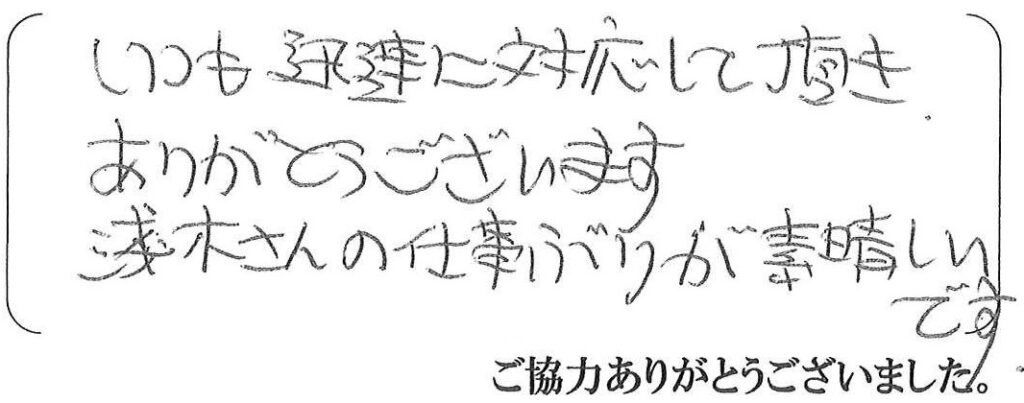 いつも迅速に対応して頂き
ありがとうございます
浅木さんの仕事ぶりが素晴しい
です
ご協力ありがとうございました。